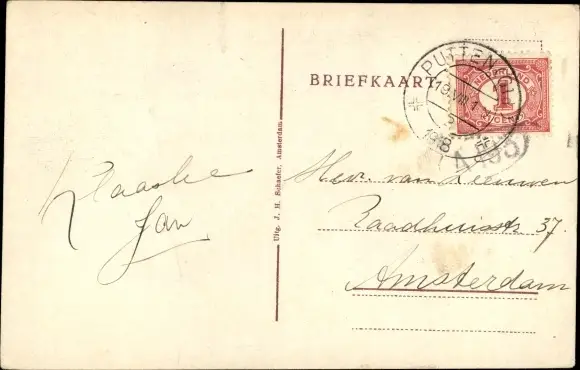 BRIEFKAART
PUTTEN
NEDERLAND
1
CENT
1918
Uitg. J. H. Schaefer, Amsterdam
Jan
Heer van Leeuwen
Raadhuisstr. 37.
Amsterdam